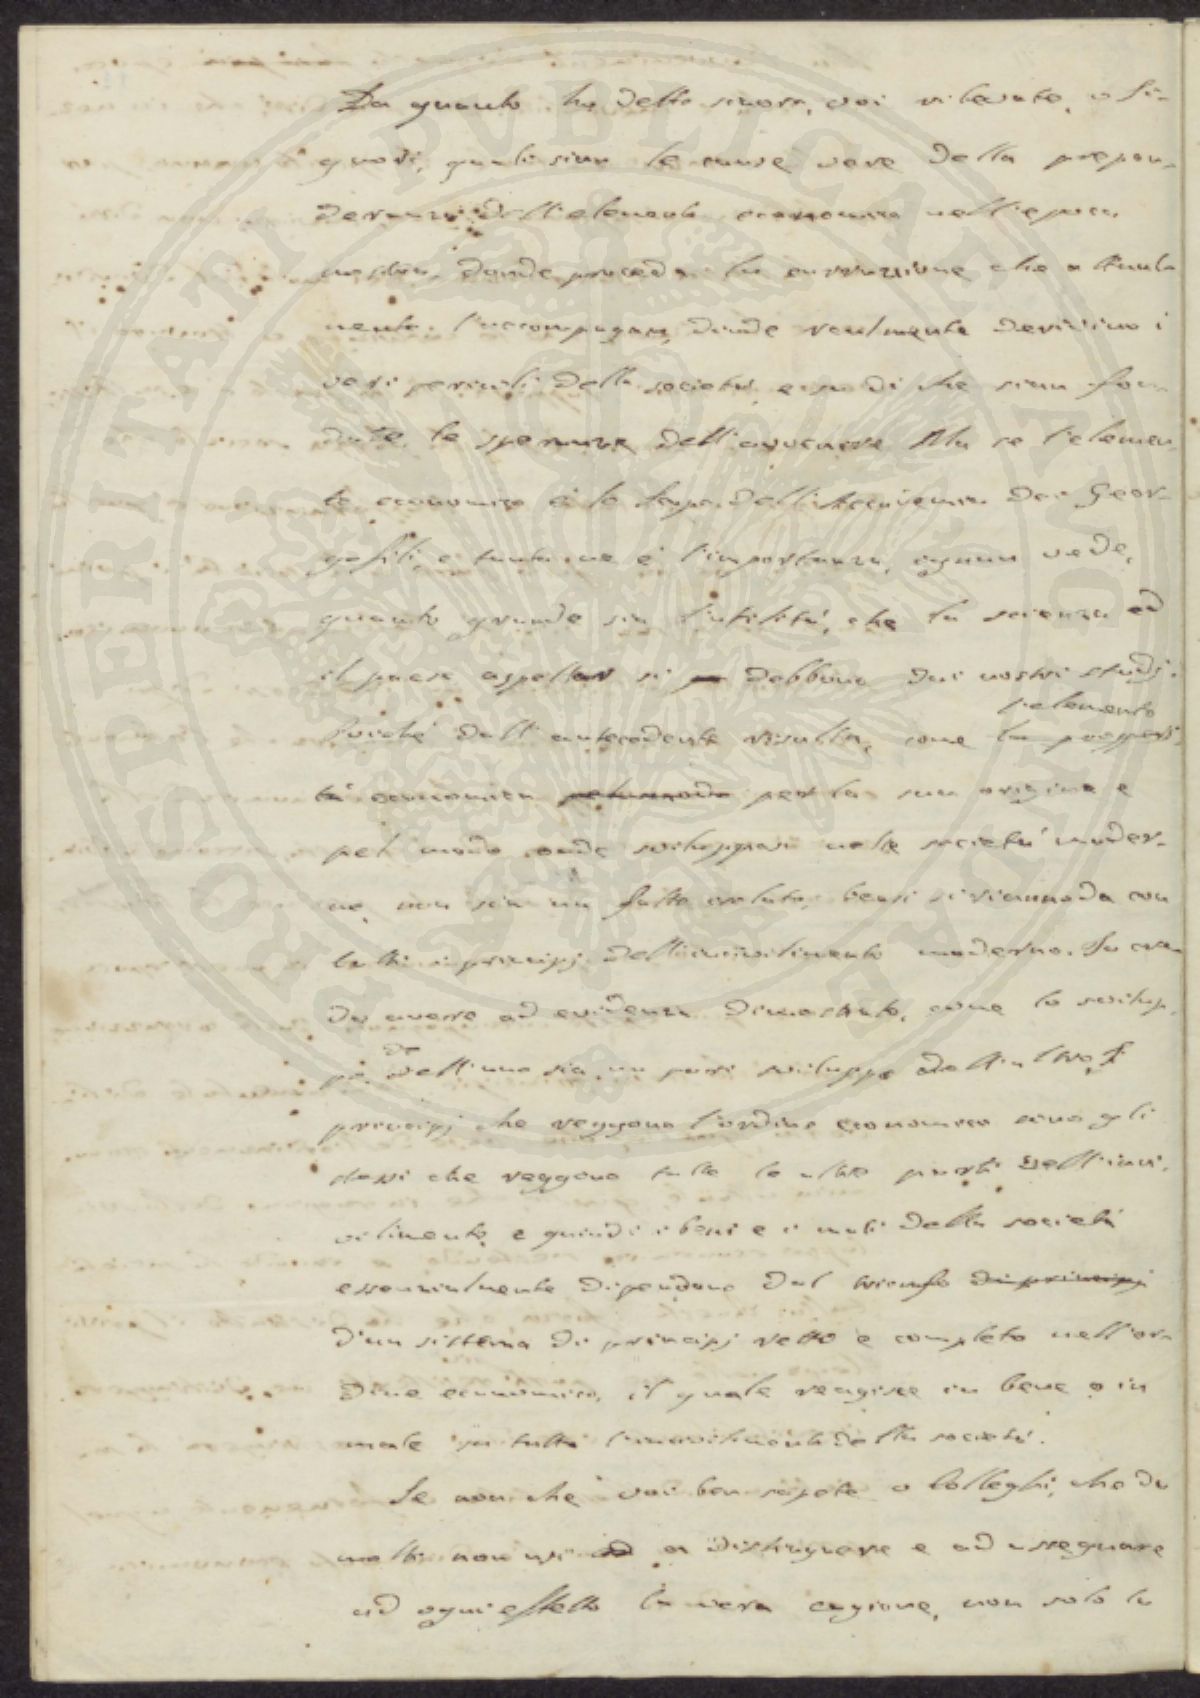 Da quanto ho detto sinora, voi rilevate, o Si-
gnori, quali sian le cause vere della prepon-
deranza dell'elemento economico nell'epoca
nostra, donde proceda la corruzione che attual-
mente l'accompagna, donde realmente derivino i
veri pericoli della società, e su di che sian fon-
date le speranze dell'avvenire. Ma se l'elemen-
to economico è lo scopo dell'Accademia dei Geor-
gofili, e tanta ne è l'importanza, ognun vede,
quanto grande sia l'utilità, che la scienza ed
il paese aspettar si debbono dai nostri studj.
l'elemento
Poiché dall'antecedente risulta, come la prosperi-
tà economica pel modo per la sua origine e
pel modo onde sviluppasi nelle società moder-
ne, non sia un fatto isolato, bensì si riannoda con
tutti i principj dell'incivilimento moderno. Io cre-
do avere ad evidenza dimostrato, come lo svilup-
po dell'uno sia un pari sviluppo dell'altro. I
principj che reggono l'ordine economico sono gli
stessi che reggono tutte le altre parti dell'inci-
vilimento, e quindi i beni e i mali della società
essenzialmente dipendono dal trionfo di principj
d'un sistema di principj retto e completo nell'or-
dine economico, il quale reagisce in bene o in
male su tutto l'incivilimento della società.
Se non che voi ben sapete, o Colleghi, che da
molti non usi a distinguere e ad assegnare
ad ogni effetto la vera cagione, non solo la